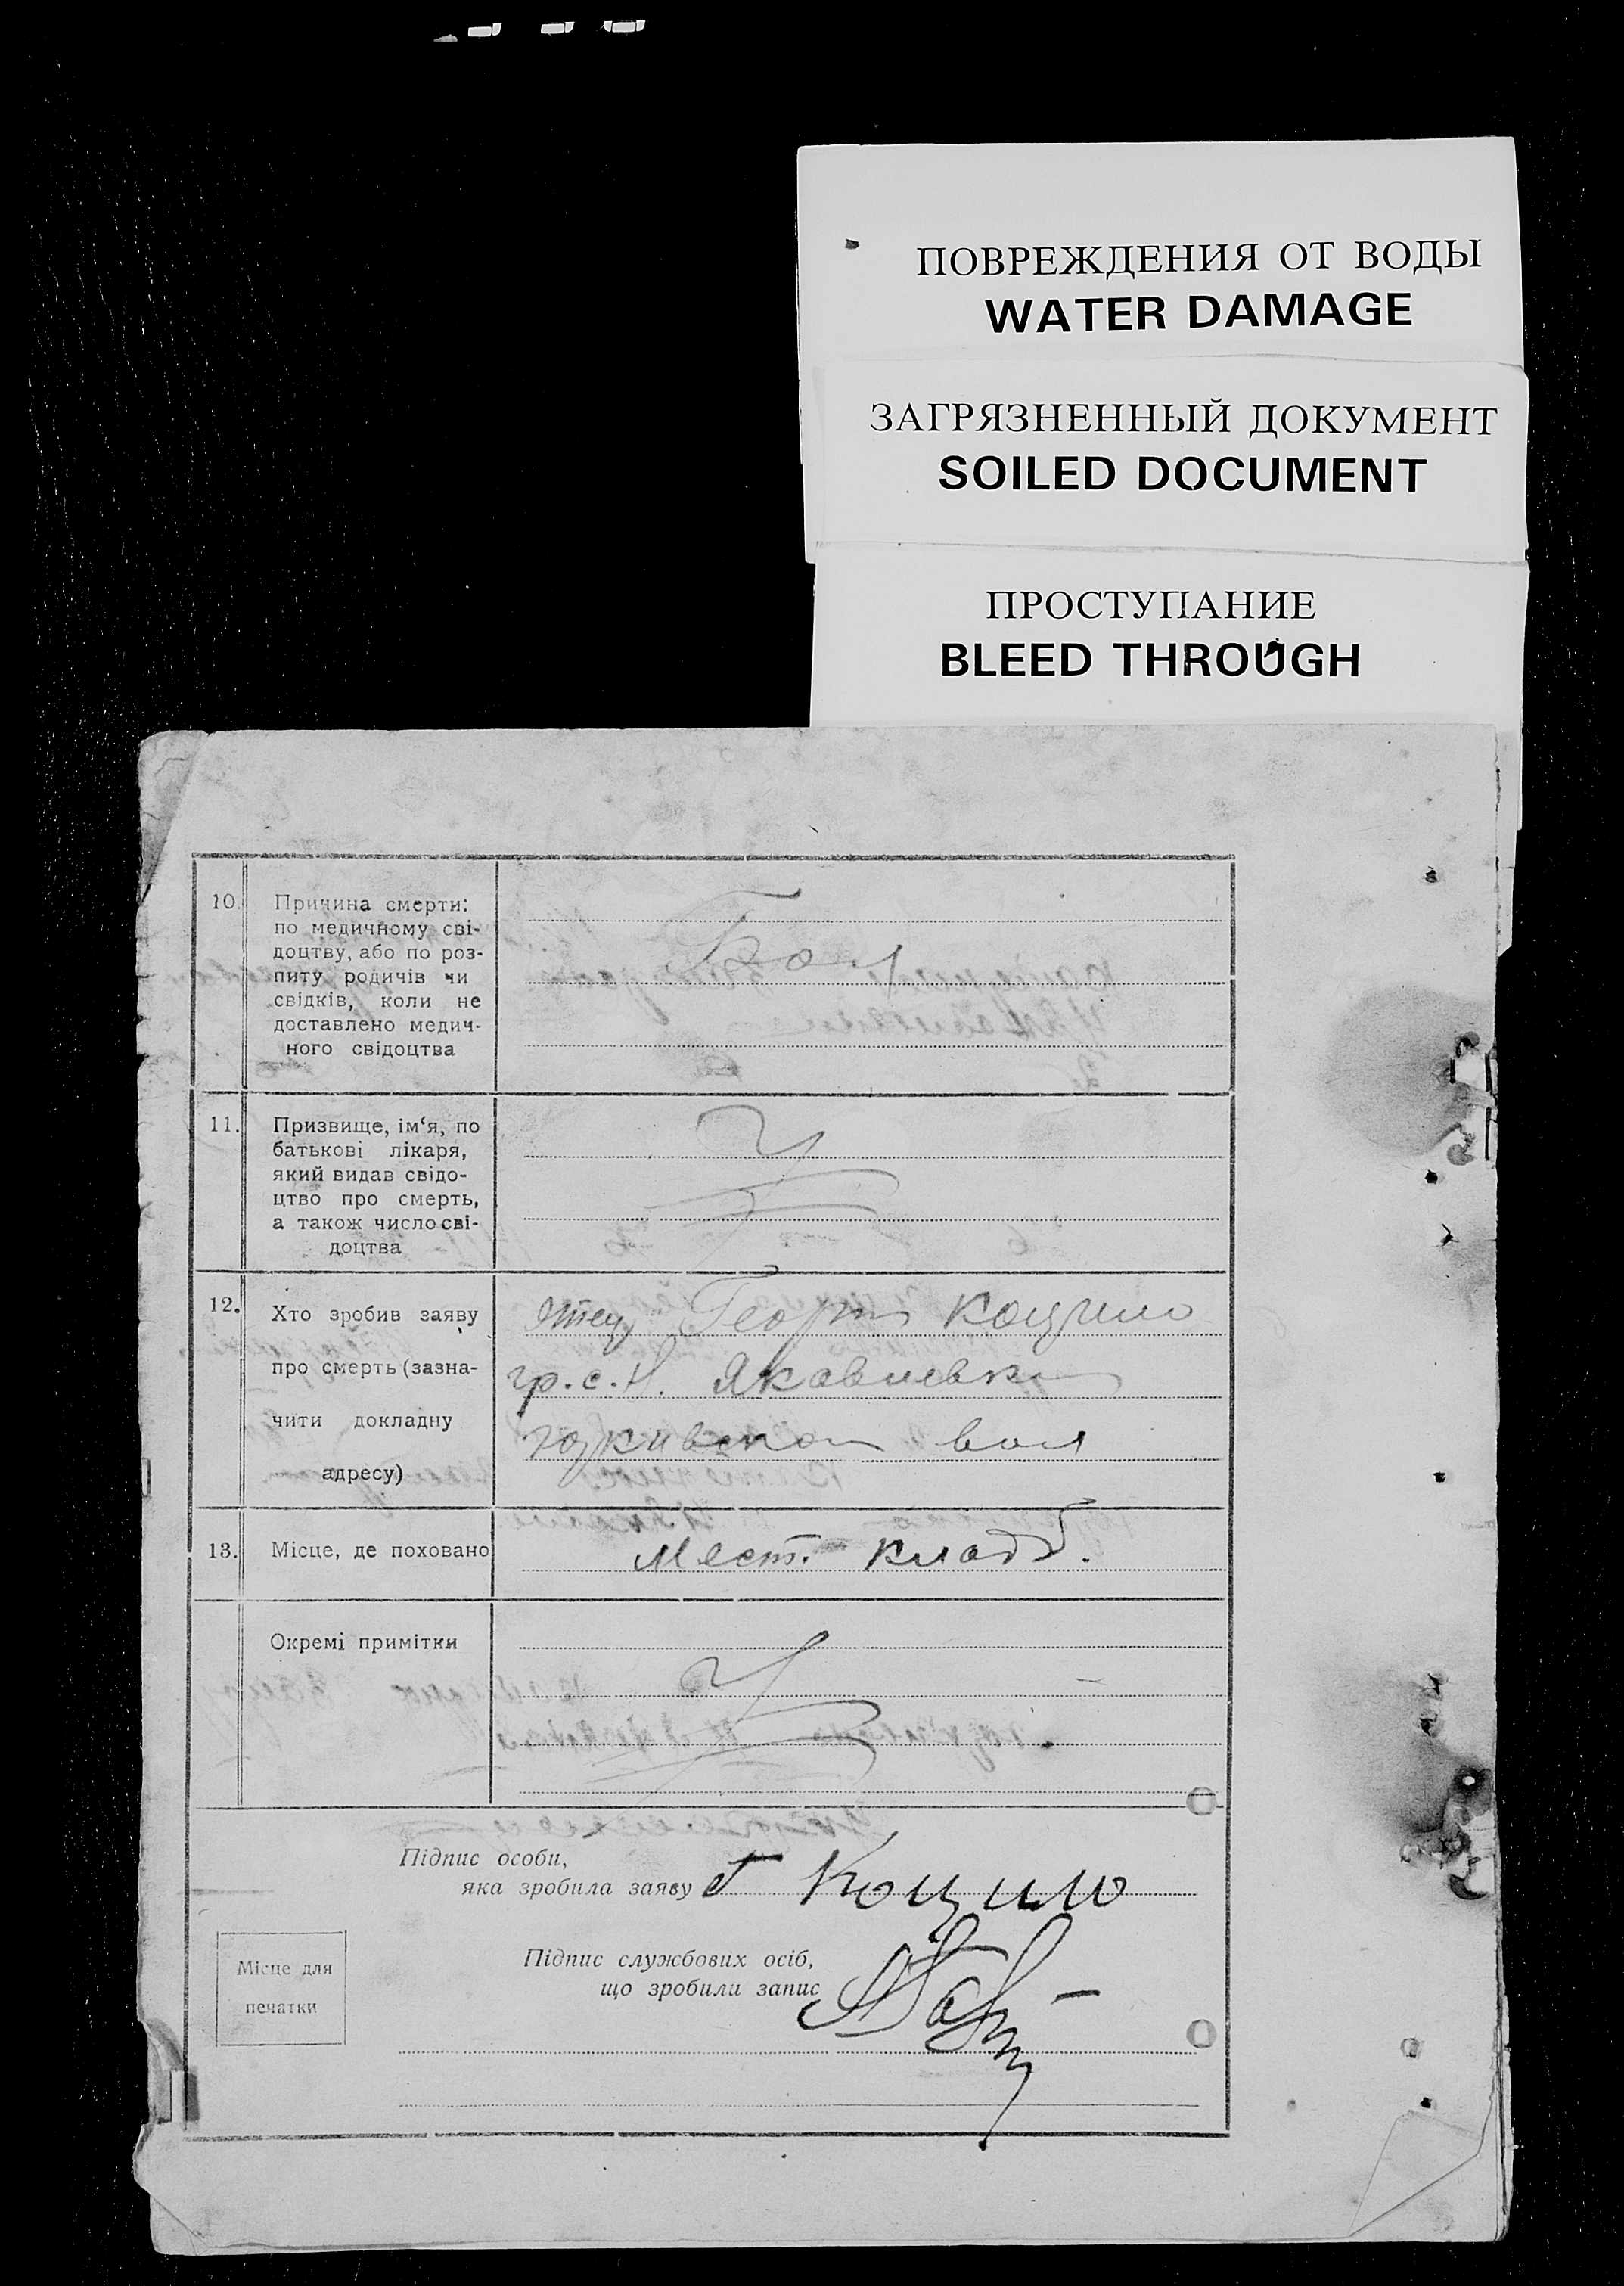 ПОВРЕЖДЕНИЯ ОТ ВОДЫ
WATER DAMAGE
ЗАГРЯЗНЕННЫЙ ДОКУМЕНТ
SOILED DOCUMENT
ПРОСТУПАНИЕ
BLEED THROUGH
10. Причина смерти:
по медичному сві-
доцтву, або по роз-
питу родичів чи
свідків, коли не
доставлено медич-
ного свідоцтва
11. Призвище, ім‘я, по
батькові лікаря,
який видав свідо-
цтво про смерть,
а також число сві-
доцтва
12. Хто зробив заяву
про смерть (зазна-
чити докладну
адресу)
Отец Георги Коцило
гр. с. Н. Яковлевка
вол
13. Місце, де поховано
Мест. кладб.
Окремі примітки
Підпис особи,
яка зробила заяву Г Коцило
Підпис службових осіб,
що зробили запис
Місце для
печатки